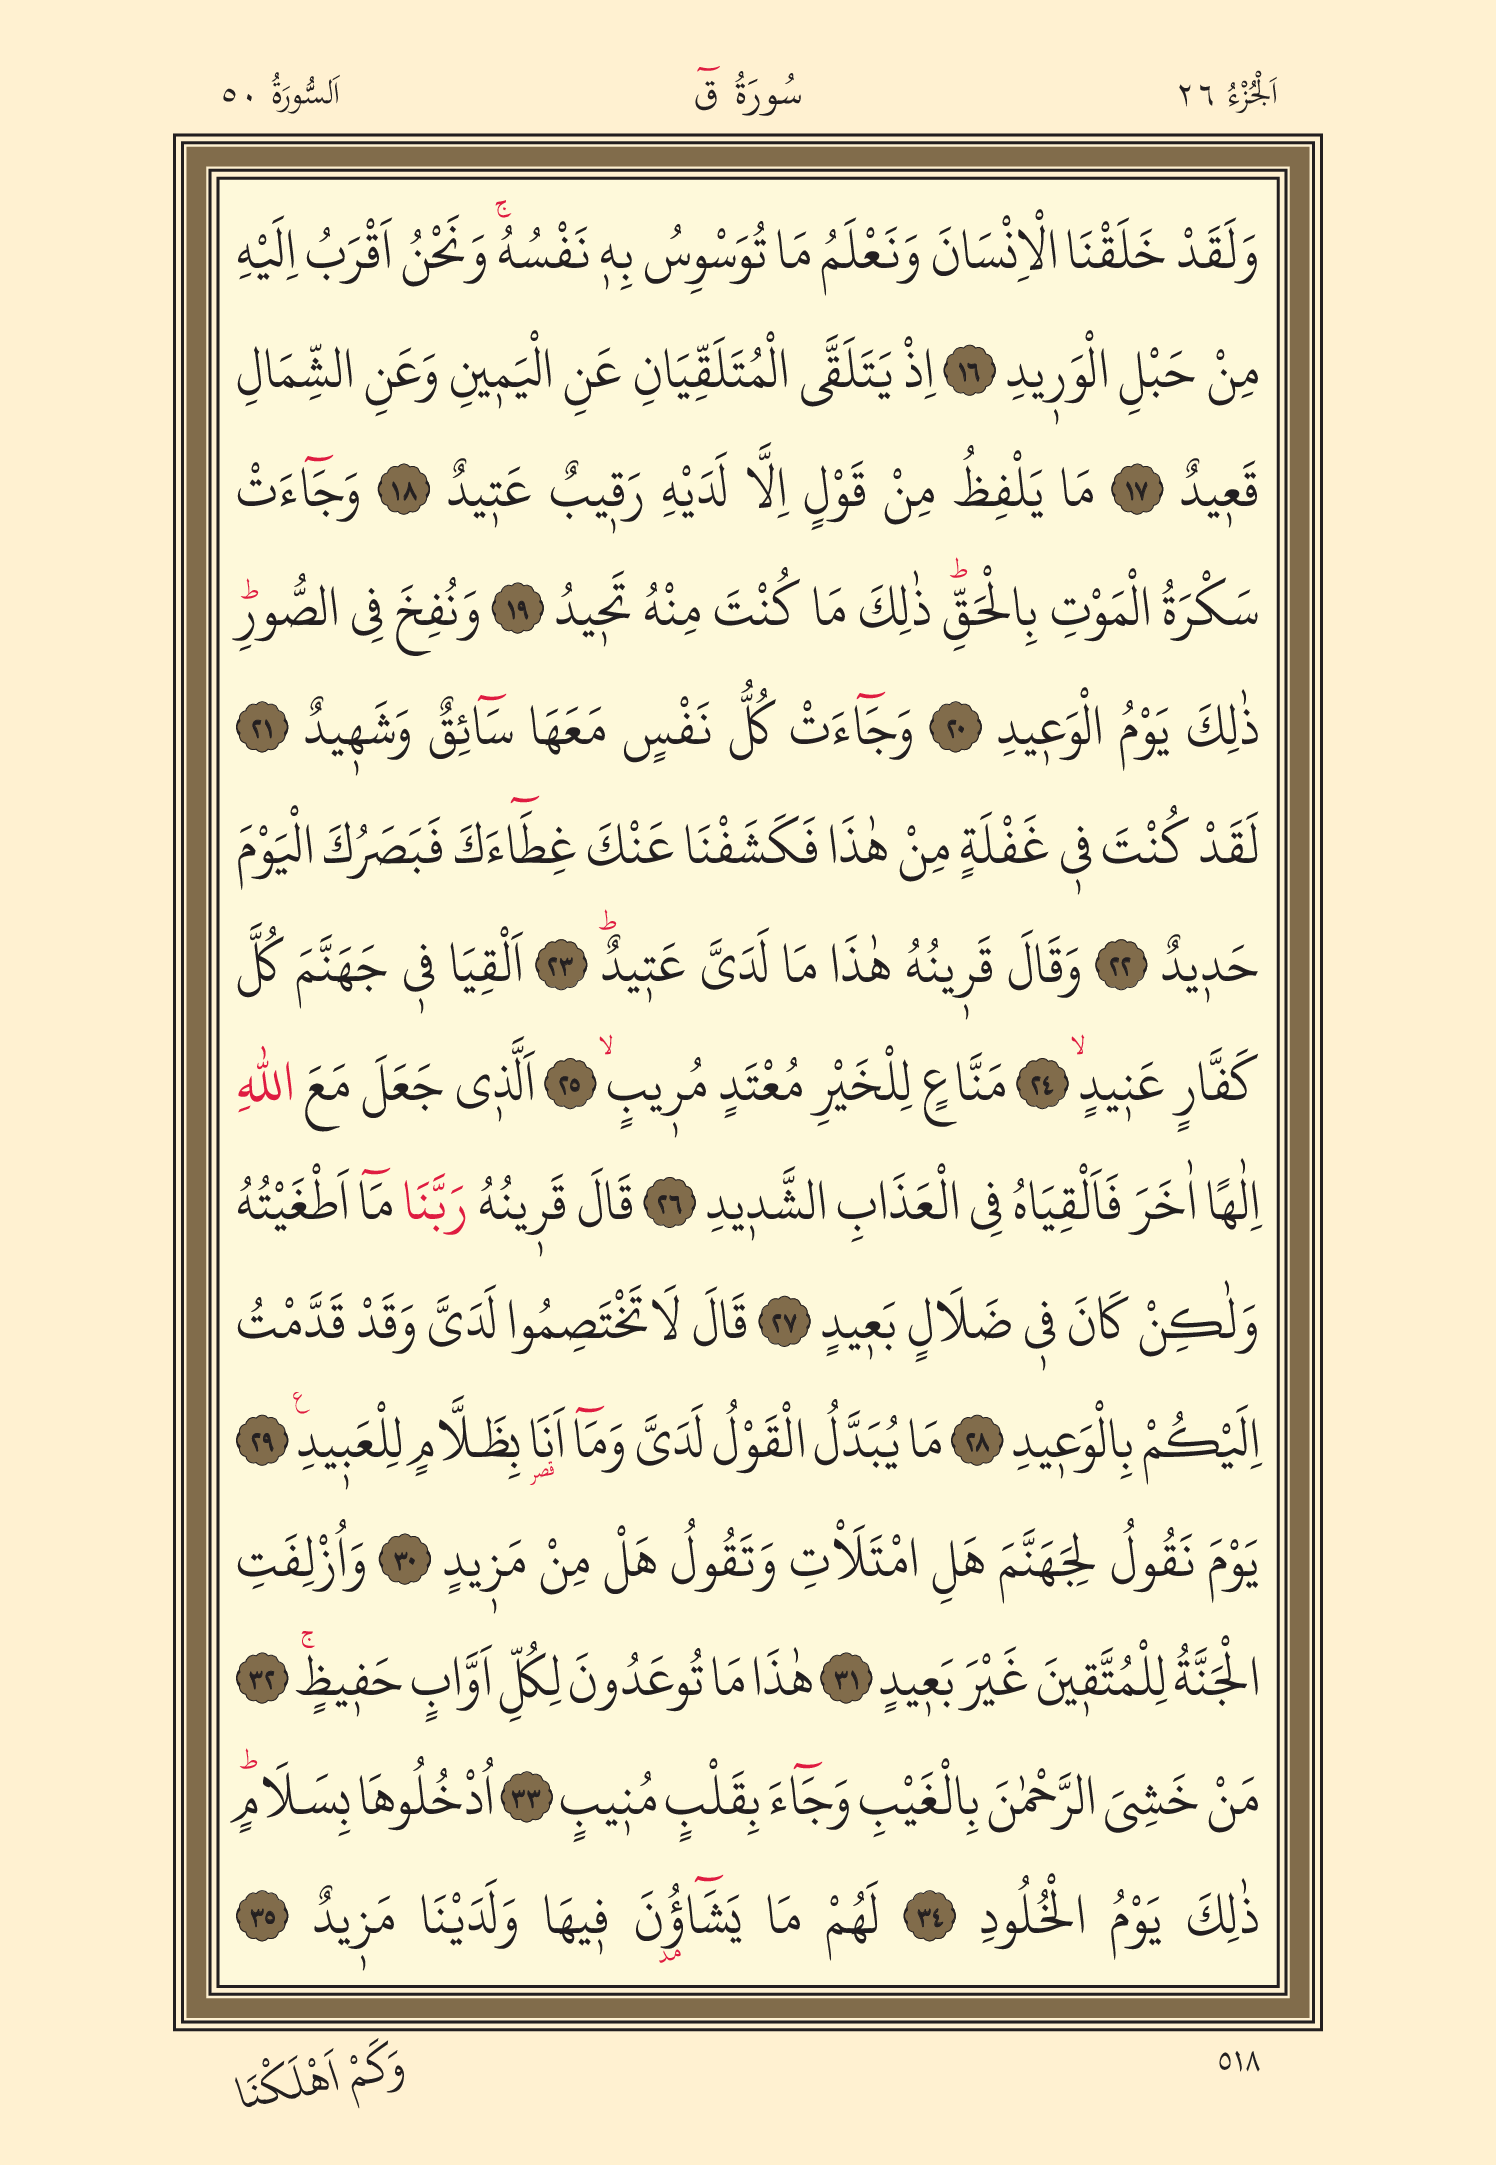 اَلْجُزْءُ ٢٦ سُورَةُ قٓ اَلسُّورَةُ ٥٠
وَلَقَدْ خَلَقْنَا الْاِنْسَانَ وَنَعْلَمُ مَا تُوَسْوِسُ بِهٖ نَفْسُهُۚ وَنَحْنُ اَقْرَبُ اِلَيْهِ
مِنْ حَبْلِ الْوَرٖيدِ ١٦ اِذْ يَتَلَقَّى الْمُتَلَقِّيَانِ عَنِ الْيَمٖينِ وَعَنِ الشِّمَالِ
قَعٖيدٌ ١٧ مَا يَلْفِظُ مِنْ قَوْلٍ اِلَّا لَدَيْهِ رَقٖيبٌ عَتٖيدٌ ١٨ وَجَٓاءَتْ
سَكْرَةُ الْمَوْتِ بِالْحَقِّؕ ذٰلِكَ مَا كُنْتَ مِنْهُ تَحٖيدُ ١٩ وَنُفِخَ فِى الصُّورِؕ
ذٰلِكَ يَوْمُ الْوَعٖيدِ ٢٠ وَجَٓاءَتْ كُلُّ نَفْسٍ مَعَهَا سَٓائِقٌ وَشَهٖيدٌ ٢١
لَقَدْ كُنْتَ فٖى غَفْلَةٍ مِنْ هٰذَا فَكَشَفْنَا عَنْكَ غِطَٓاءَكَ فَبَصَرُكَ الْيَوْمَ
حَدٖيدٌ ٢٢ وَقَالَ قَرٖينُهُ هٰذَا مَا لَدَىَّ عَتٖيدٌؕ ٢٣ اَلْقِيَا فٖى جَهَنَّمَ كُلَّ
كَفَّارٍ عَنٖيدٍۙ ٢٤ مَنَّاعٍ لِلْخَيْرِ مُعْتَدٍ مُرٖيبٍۙ ٢٥ اَلَّذٖى جَعَلَ مَعَ اللّٰهِ
اِلٰهًا اٰخَرَ فَاَلْقِيَاهُ فِى الْعَذَابِ الشَّدٖيدِ ٢٦ قَالَ قَرٖينُهُ رَبَّنَا مَٓا اَطْغَيْتُهُ
وَلٰكِنْ كَانَ فٖى ضَلَالٍ بَعٖيدٍ ٢٧ قَالَ لَا تَخْتَصِمُوا لَدَىَّ وَقَدْ قَدَّمْتُ
اِلَيْكُمْ بِالْوَعٖيدِ ٢٨ مَا يُبَدَّلُ الْقَوْلُ لَدَىَّ وَمَٓا اَنَا۬ قصر بِظَلَّامٍ لِلْعَبٖيدِ ع ٢٩
يَوْمَ نَقُولُ لِجَهَنَّمَ هَلِ امْتَلَاْتِ وَتَقُولُ هَلْ مِنْ مَزٖيدٍ ٣٠ وَاُزْلِفَتِ
الْجَنَّةُ لِلْمُتَّقٖينَ غَيْرَ بَعٖيدٍ ٣١ هٰذَا مَا تُوعَدُونَ لِكُلِّ اَوَّابٍ حَفٖيظٍۚ ٣٢
مَنْ خَشِىَ الرَّحْمٰنَ بِالْغَيْبِ وَجَٓاءَ بِقَلْبٍ مُنٖيبٍ ٣٣ اُدْخُلُوهَا بِسَلَامٍؕ
ذٰلِكَ يَوْمُ الْخُلُودِ ٣٤ لَهُمْ مَا يَشَٓاؤُنَ مد فٖيهَا وَلَدَيْنَا مَزٖيدٌ ٣٥
٥١٨ وَكَمْ اَهْلَكْنَا